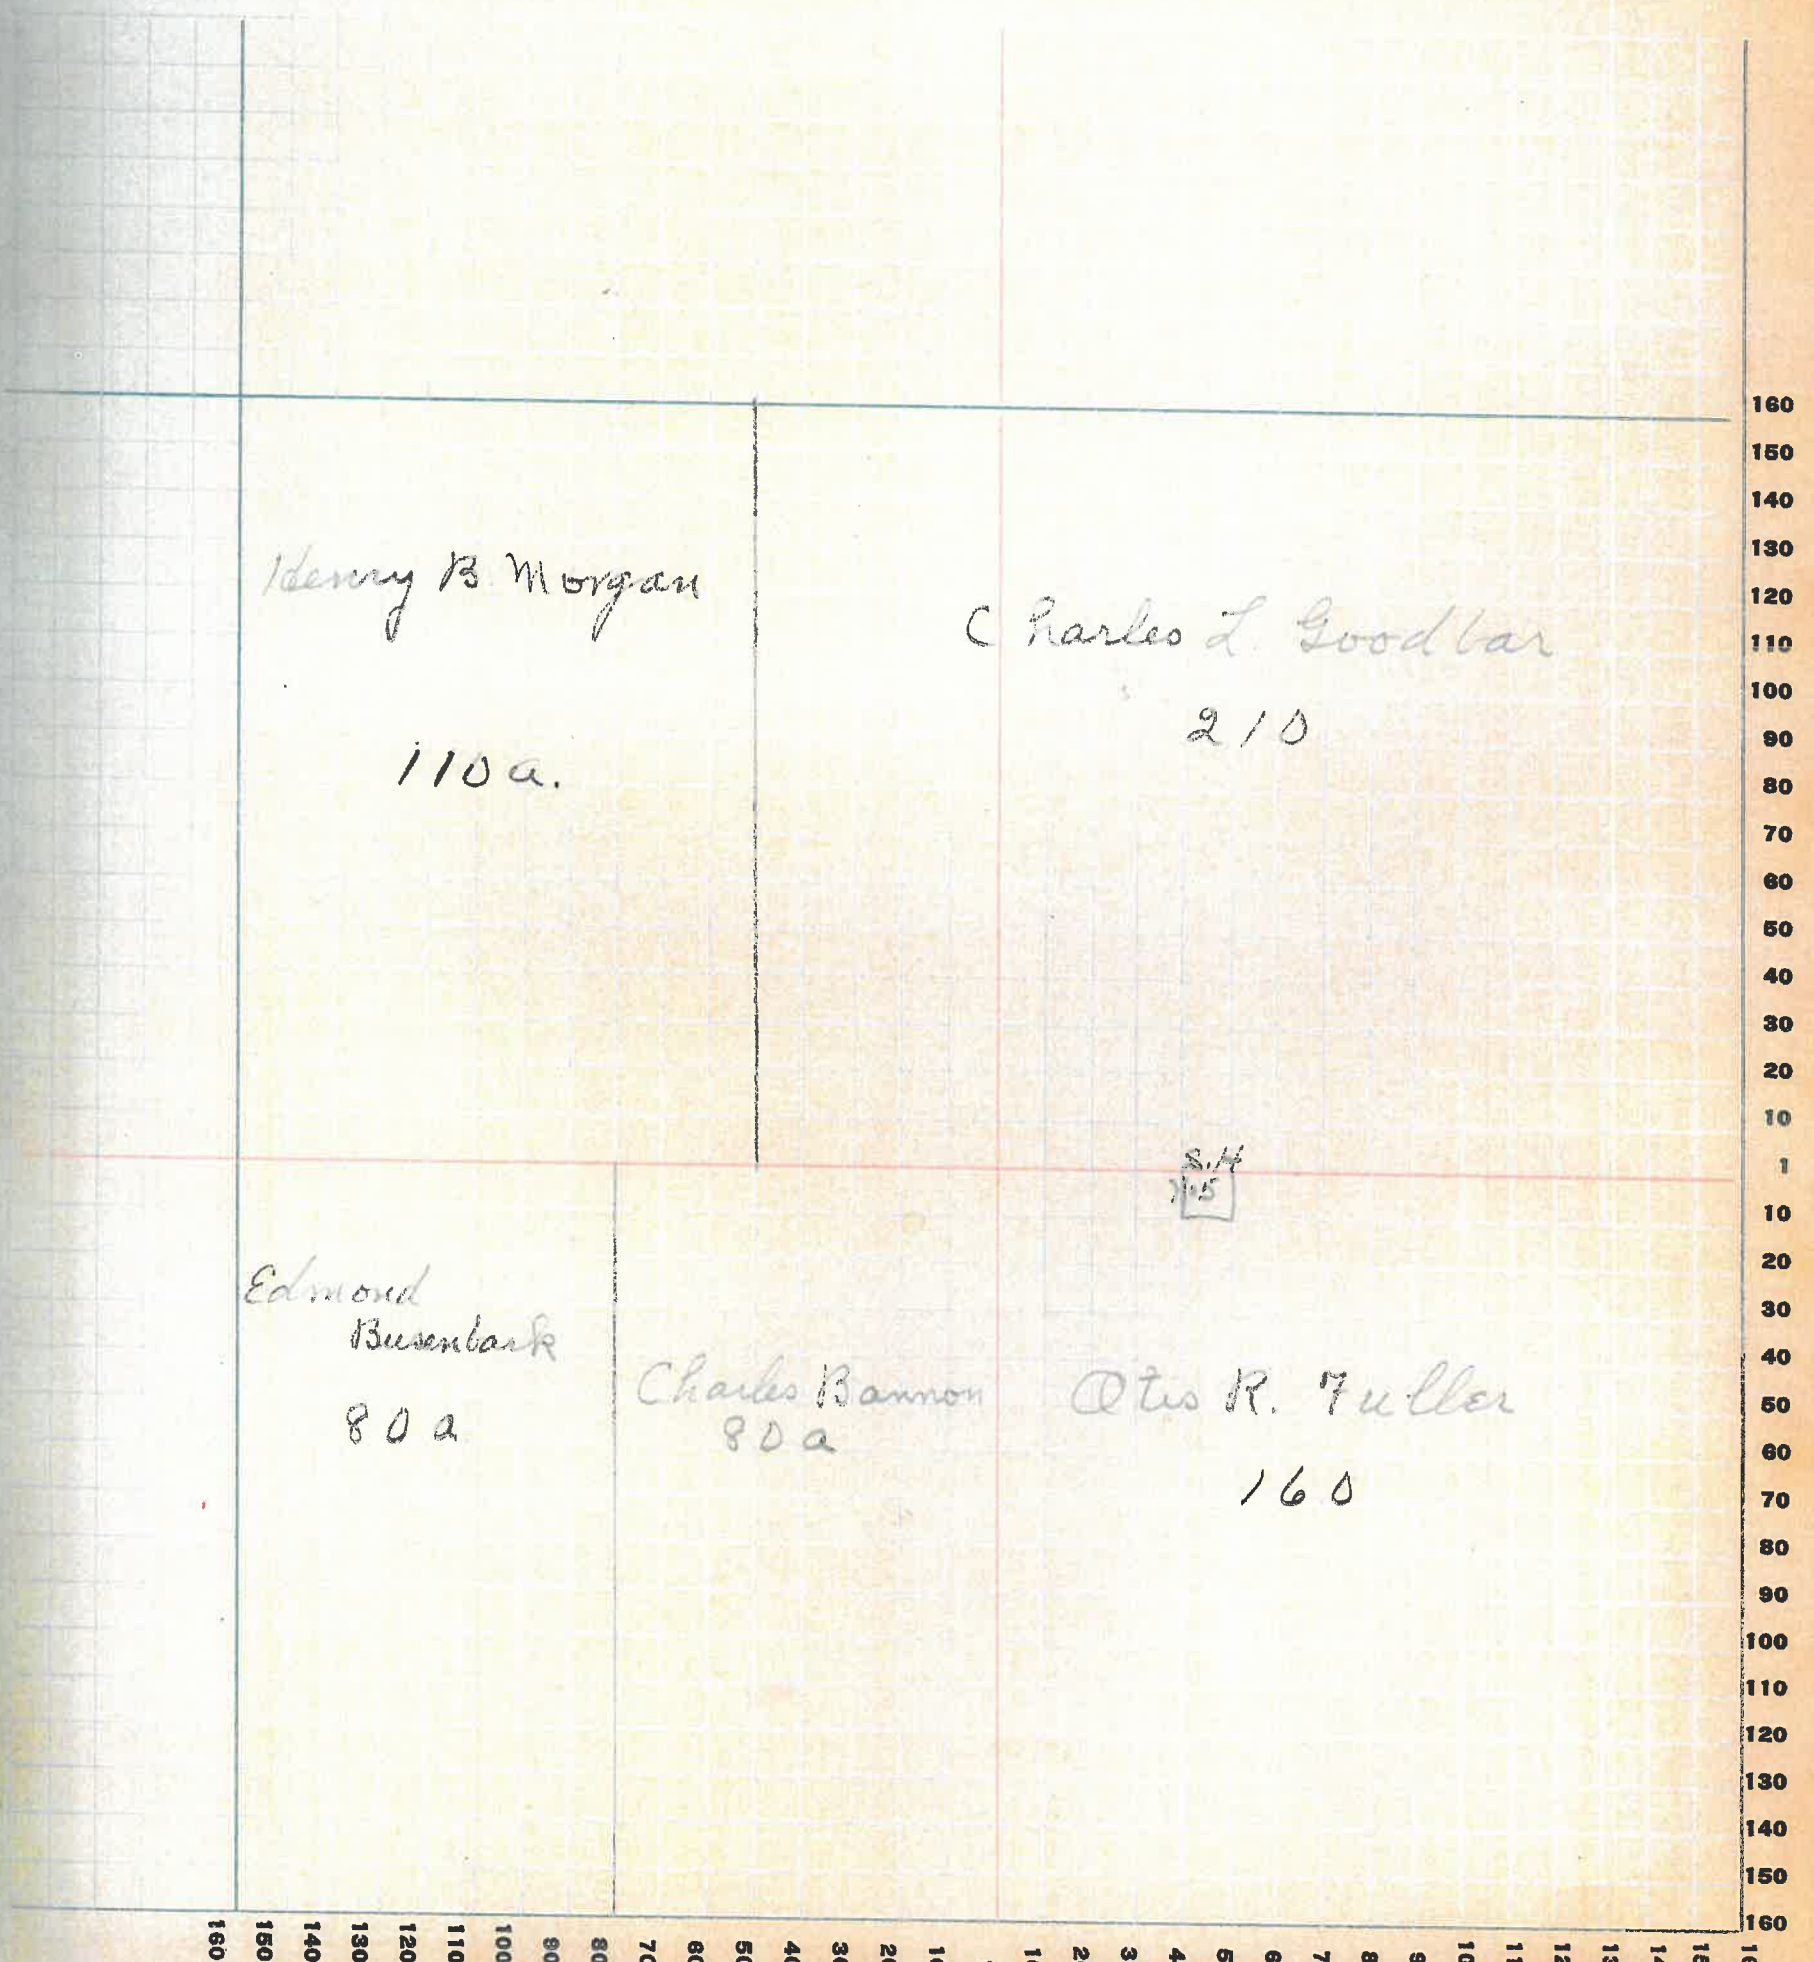 Henry B Morgan
110 a.
Charles L. Goodbar
210
S.H
.5
Edmond
Busenbark
80 a
Charles Bannon
80 a
Otis R. Fuller
160
160
150
140
130
120
110
100
90
80
70
60
50
40
30
20
10
1
10
20
30
40
50
60
70
80
90
100
110
120
130
140
150
160
160 150 140 130 120 110 100 90 80 70 60 50 40 30 20 10